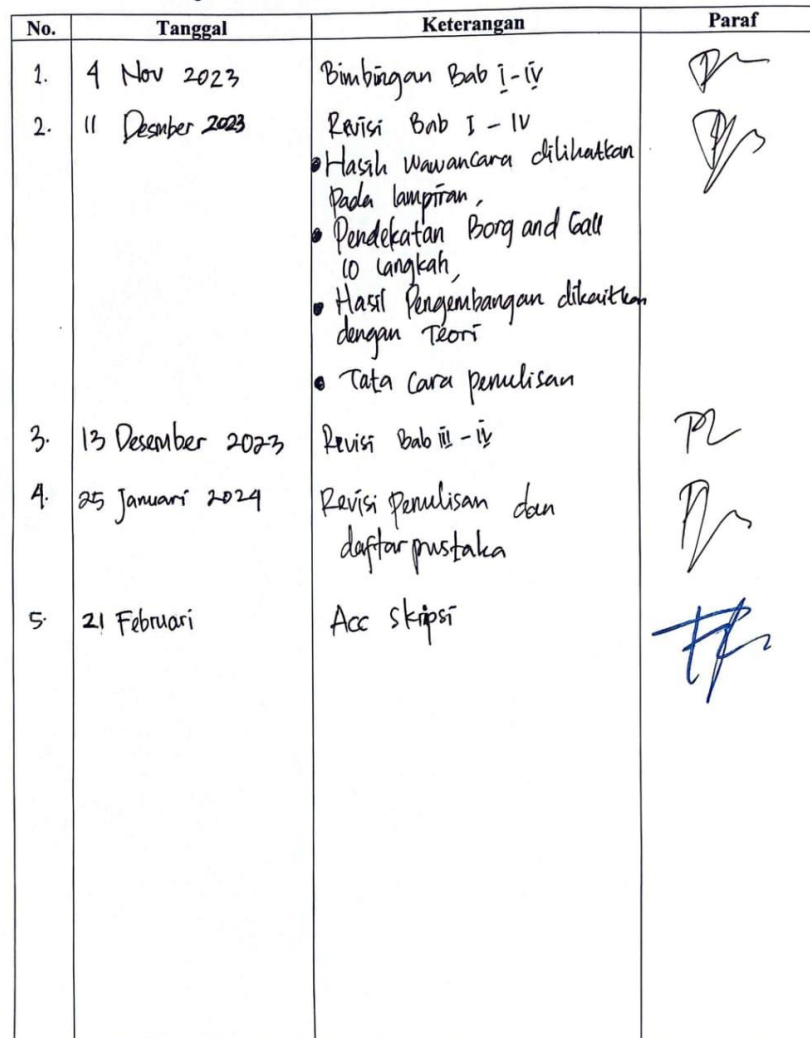 No. Tanggal Keterangan Paraf
1. 4 Nov 2023 Bimbingan Bab I-IV
2. 11 Desmber 2023 Revisi Bab I - IV
• Hasih wawancara dilihatkan
pada lampiran,
• Pendekatan Borg and Gall
10 langkah,
• Hasil Pengembangan dikaitkan
dengan Teori
• Tata Cara penulisan
3. 13 Desember 2023 Revisi Bab iii - iv
4. 25 Januari 2024 Revisi Penulisan dan
daftar pustaka
5. 21 Februari Acc Skripsi